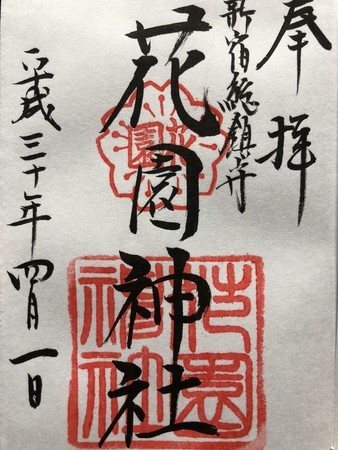 奉拝
新宿総鎮守
花園神社
花園
花園神社
平成三十年四月一日